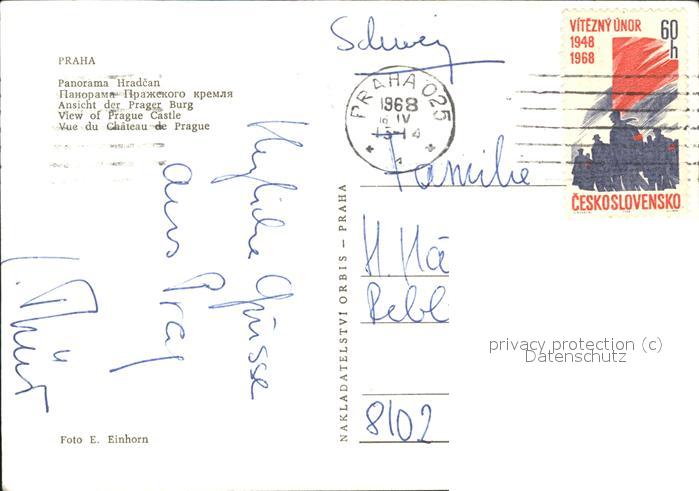 PRAHA
Panorama Hradčan
Панорама Пражского кремля
Ansicht der Prager Burg
View of Prague Castle
Vue du Château de Prague
Herzliche Grüsse
aus Prag
Foto E. Einhorn
NAKLADATELSTVÍ ORBIS – PRAHA
Schweiz
PRAHA 025
1968
16. IV
13-14
VÍTĚZNÝ ÚNOR
1948
1968
60
h
ČESKOSLOVENSKO
Familie
H. Hä
Rebb
8102
privacy protection (c)
Datenschutz